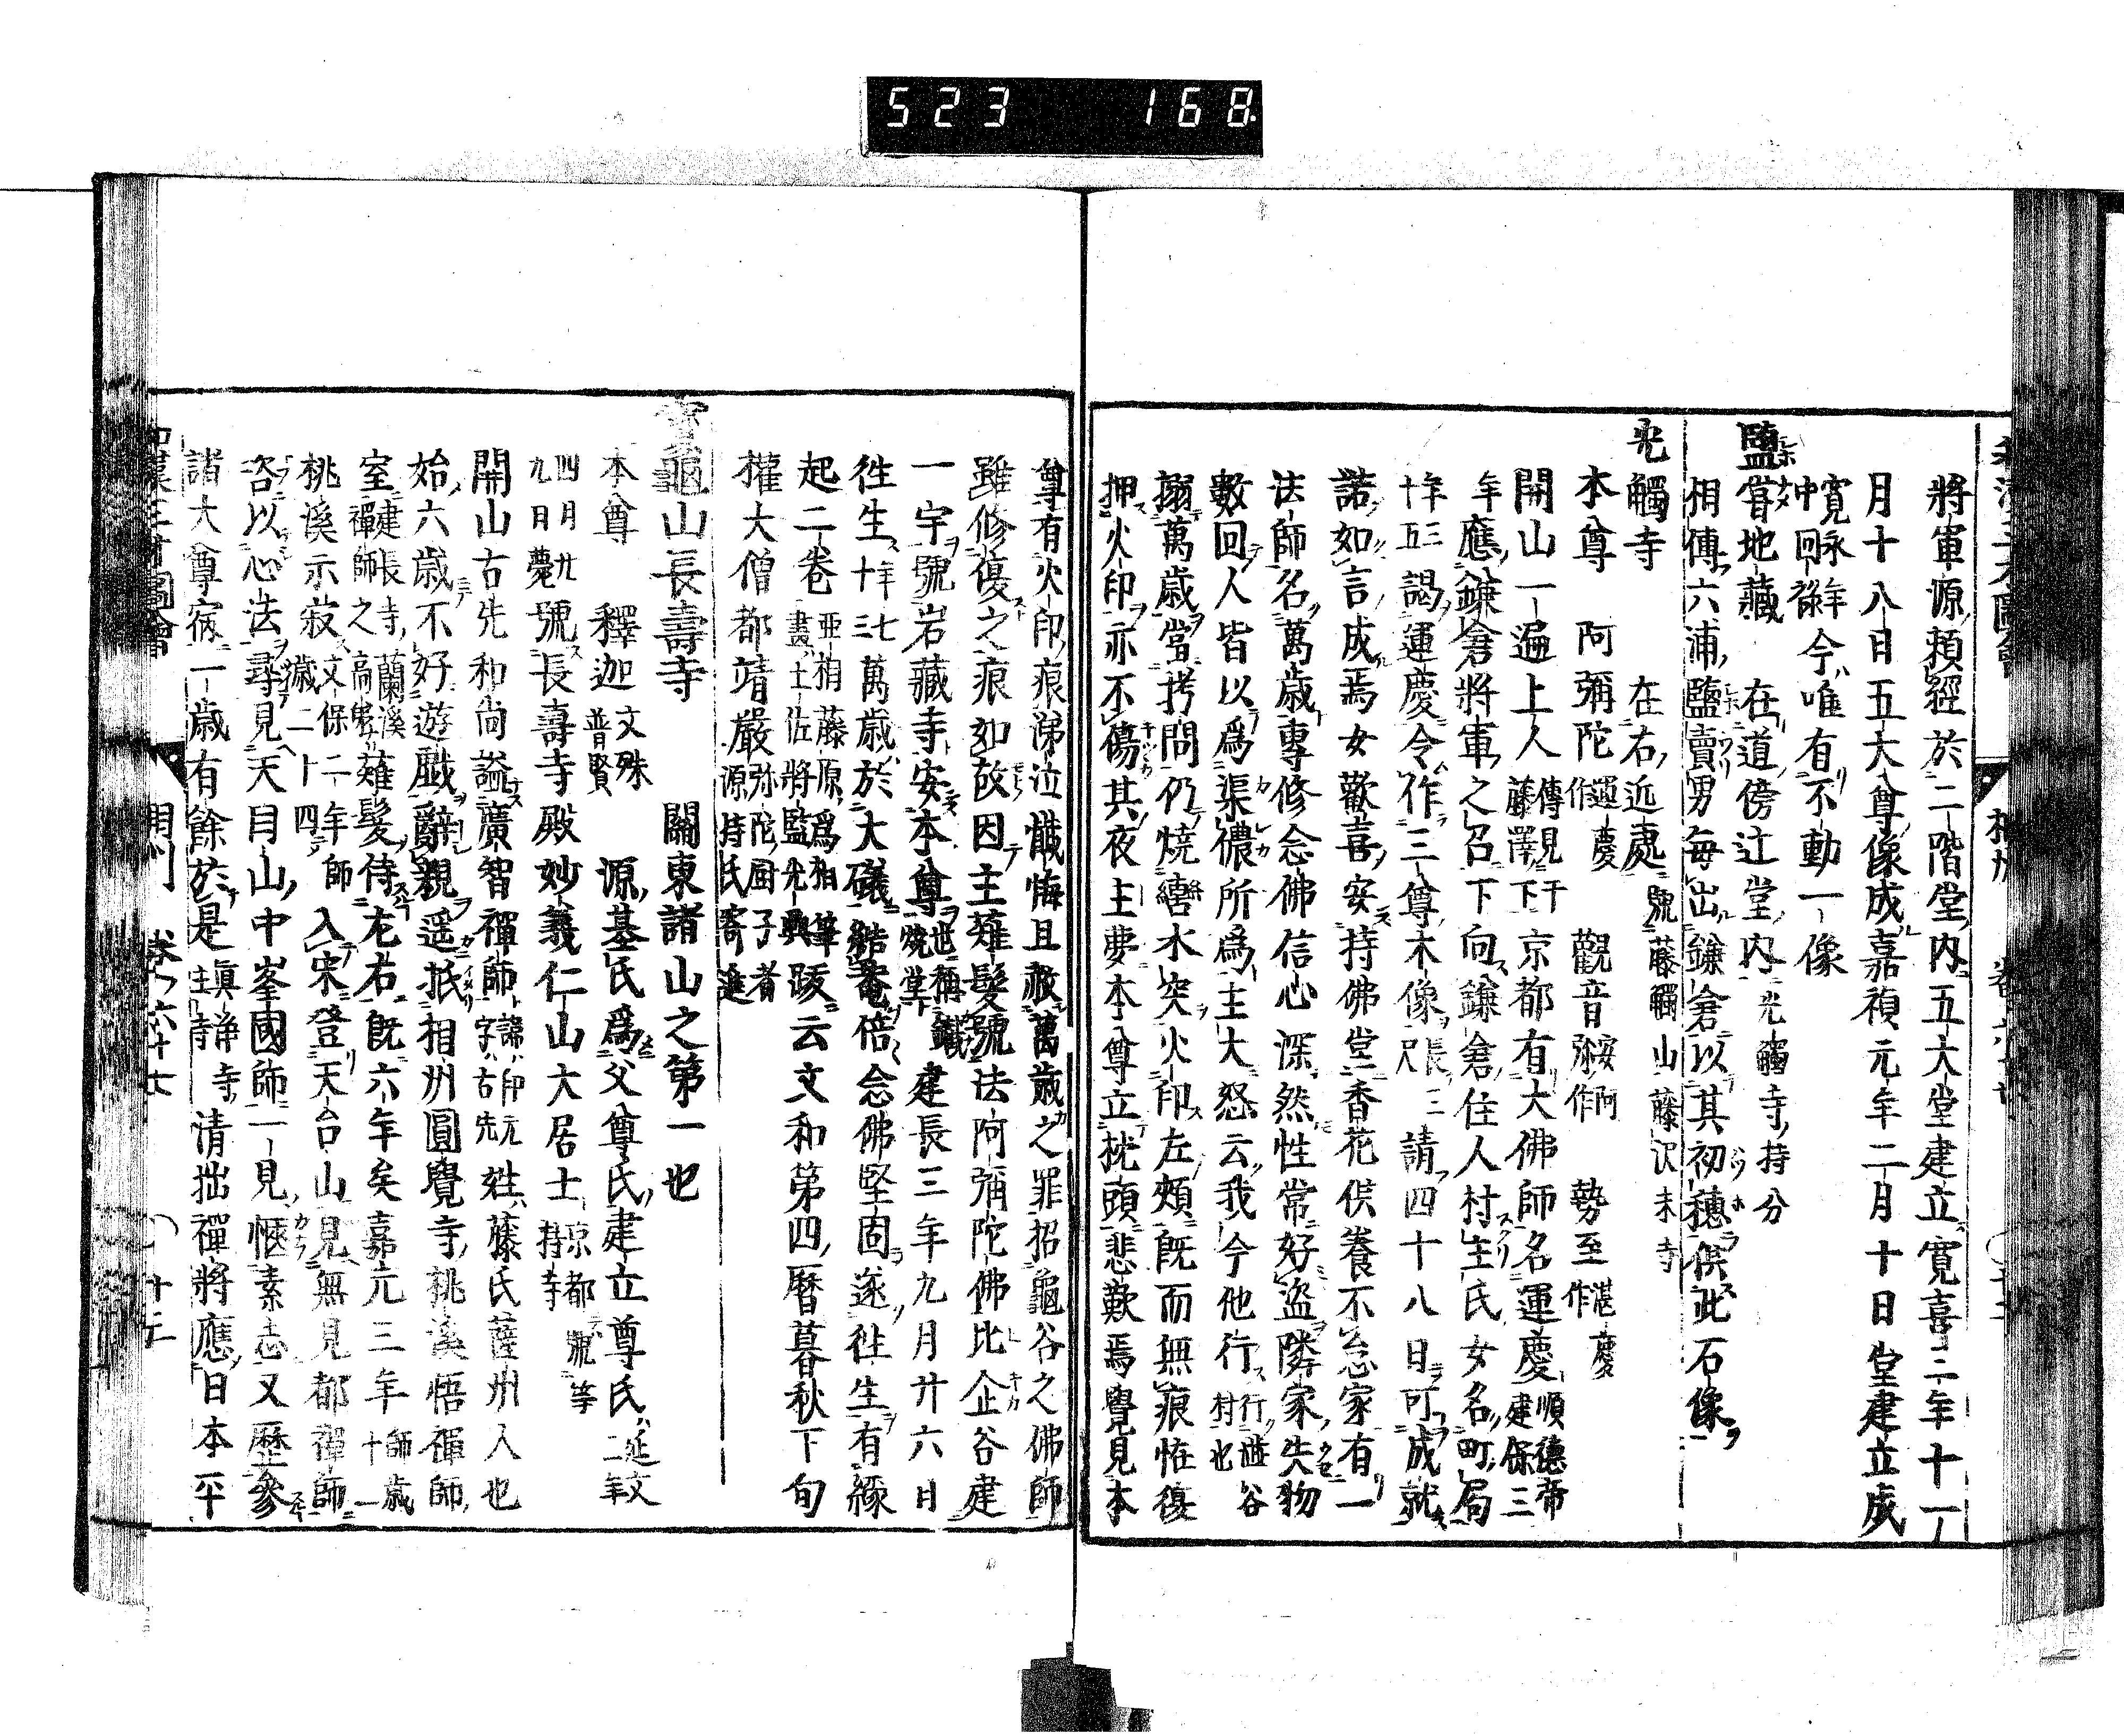 523 168
將軍源頼經於二階堂内五大堂建立寛喜三年十一
月十八日五大尊像成嘉禎元年二月十日堂建立成
寛永年中回祿今唯有不動一像
鹽嘗地藏 在道傍辻堂内 光觸寺持分
相傳六浦鹽賣男毎出鎌倉以其初穗供此石像
光觸寺 在右近處 號藤觸山藤沢末寺
本尊 阿彌陀 運慶作 觀音 安阿弥作 勢至 湛慶作
開山一遍上人 傳見于藤澤下 京都有大佛師名運慶 順德帝建保三
年應鎌倉將軍之召下向鎌倉住人村主氏女名町局
年三十五 謁運慶令作三尊木像 長三尺 請四十八日可成就
諾如言成焉女歡喜安持佛堂香花供養不怠家有一
法師名萬歳專修念佛信心深然性常好盜隣家失物
數回人皆以爲渠儂所爲主大怒云我今他行 行澁谷村也
搦萬歳當拷問仍燒轡水突火印左頰既而無痕恠復
押火印亦不傷其夜主夢本尊立枕頭悲歎焉覺見本
尊有火印痕涕泣懺悔且赦萬歳之罪招龜谷之佛師
雖修復之痕如故因主薙髮號法阿彌陀佛比企谷建
一宇號岩藏寺安本尊 也稱火印堂 建長三年九月廿六日
往生 年七十三 萬歳於大礒結菴倍念佛堅固遂往生有縁
起二卷 亞相藤原爲相筆畫土佐將監光興 跋云文和第四暦暮秋下旬
權大僧都靖嚴 弥陀厨子者源持氏寄進
寶龜山長壽寺 關東諸山之第一也
本尊 釋迦 文殊普賢 源基氏爲父尊氏建立尊氏 延文二年
四月廿九日薨 號長壽寺殿妙義仁山大居士 京都號等持寺
開山古先和尚謚廣智禪師 諱印元字古先 姓藤氏薩州人也
始六歳不好遊戲辭親遥抵相州圓覺寺桃溪悟禪師
室 建長寺蘭溪禪師之高弟 薙髮侍左右既六年矣嘉元三年 師歳十一
桃溪示寂 文保二年師歳二十四 入宋登天台山見無見都禪師
咨以心法尋見天目山中峯國師一見愜素志又歷參
諸大尊宿一歳有餘於是眞淨寺 主寺 清拙禪將應日本平
和漢三才圖會 相州 卷六十七 十二